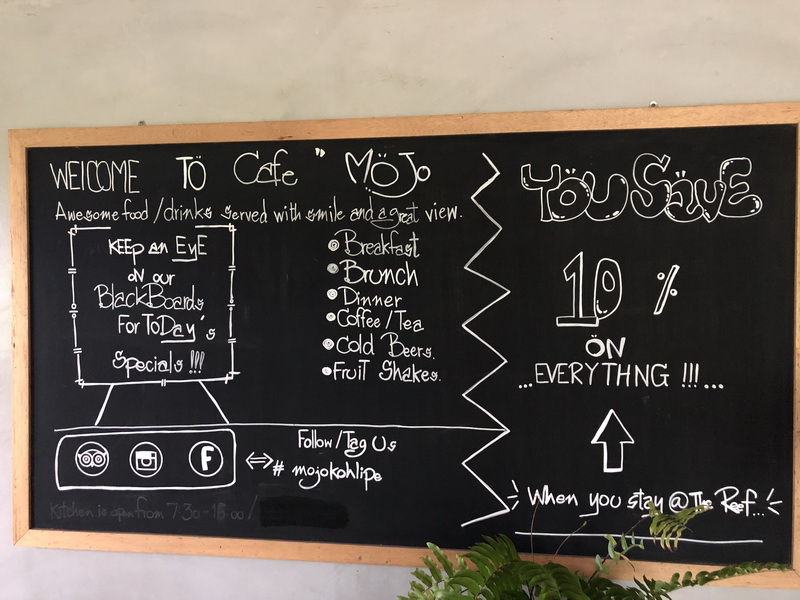 WELCOME TÖ Cafe " MöJo
Awesome food / drinks served with smile and a great view.
KEEp an EyE
oN our
BlackBoards
For ToDay's
Specials !!!
Breakfast
Brunch
Dinner
Coffee / Tea
Cold Beers.
Fruit Shakes.
Follow / Tag Us
# mojokohlipe
Kitchen is open from 7:30 -
YöU SävE
10 %
ÖN
...EVERYTHNG !!!...
When you stay @ The Reef...